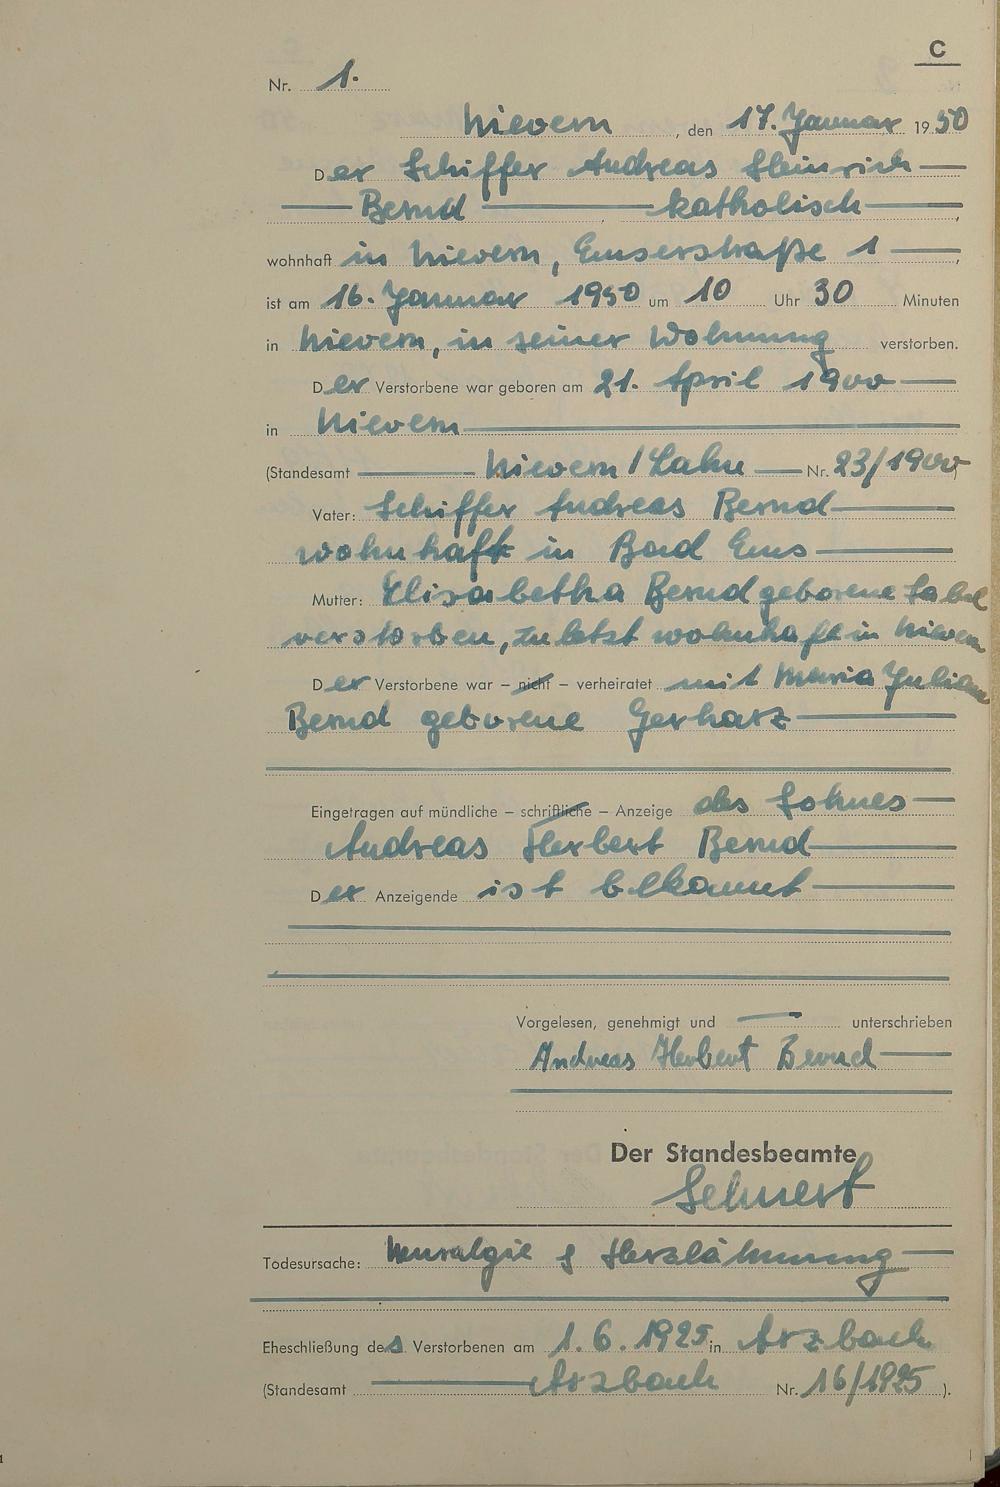 C
Nr. 1.
Nievern, den 17. Januar 1950
Der Schiffer Andreas Heinrich
Bernd katholisch,
wohnhaft in Nievern, Emserstraße 1,
ist am 16. Januar 1950 um 10 Uhr 30 Minuten
in Nievern, in seiner Wohnung verstorben.
Der Verstorbene war geboren am 21. April 1900
in Nievern
(Standesamt Nievern/Lahn Nr. 23/1900)
Vater: Schiffer Andreas Bernd
wohnhaft in Bad Ems
Mutter: Elisabetha Bernd geborene Sabel
verstorben, zuletzt wohnhaft in Nievern
Der Verstorbene war – nicht – verheiratet mit Maria Juliana
Bernd geborene Gerharz
Eingetragen auf mündliche – schriftliche – Anzeige des Sohnes
Andreas Herbert Bernd
Der Anzeigende ist bekannt
Vorgelesen, genehmigt und unterschrieben
Andreas Herbert Bernd
Der Standesbeamte
Todesursache: Neuralgie & Herzlähmung
Eheschließung des Verstorbenen am 1.6.1925 in Arzbach
(Standesamt Arzbach Nr. 16/1925).